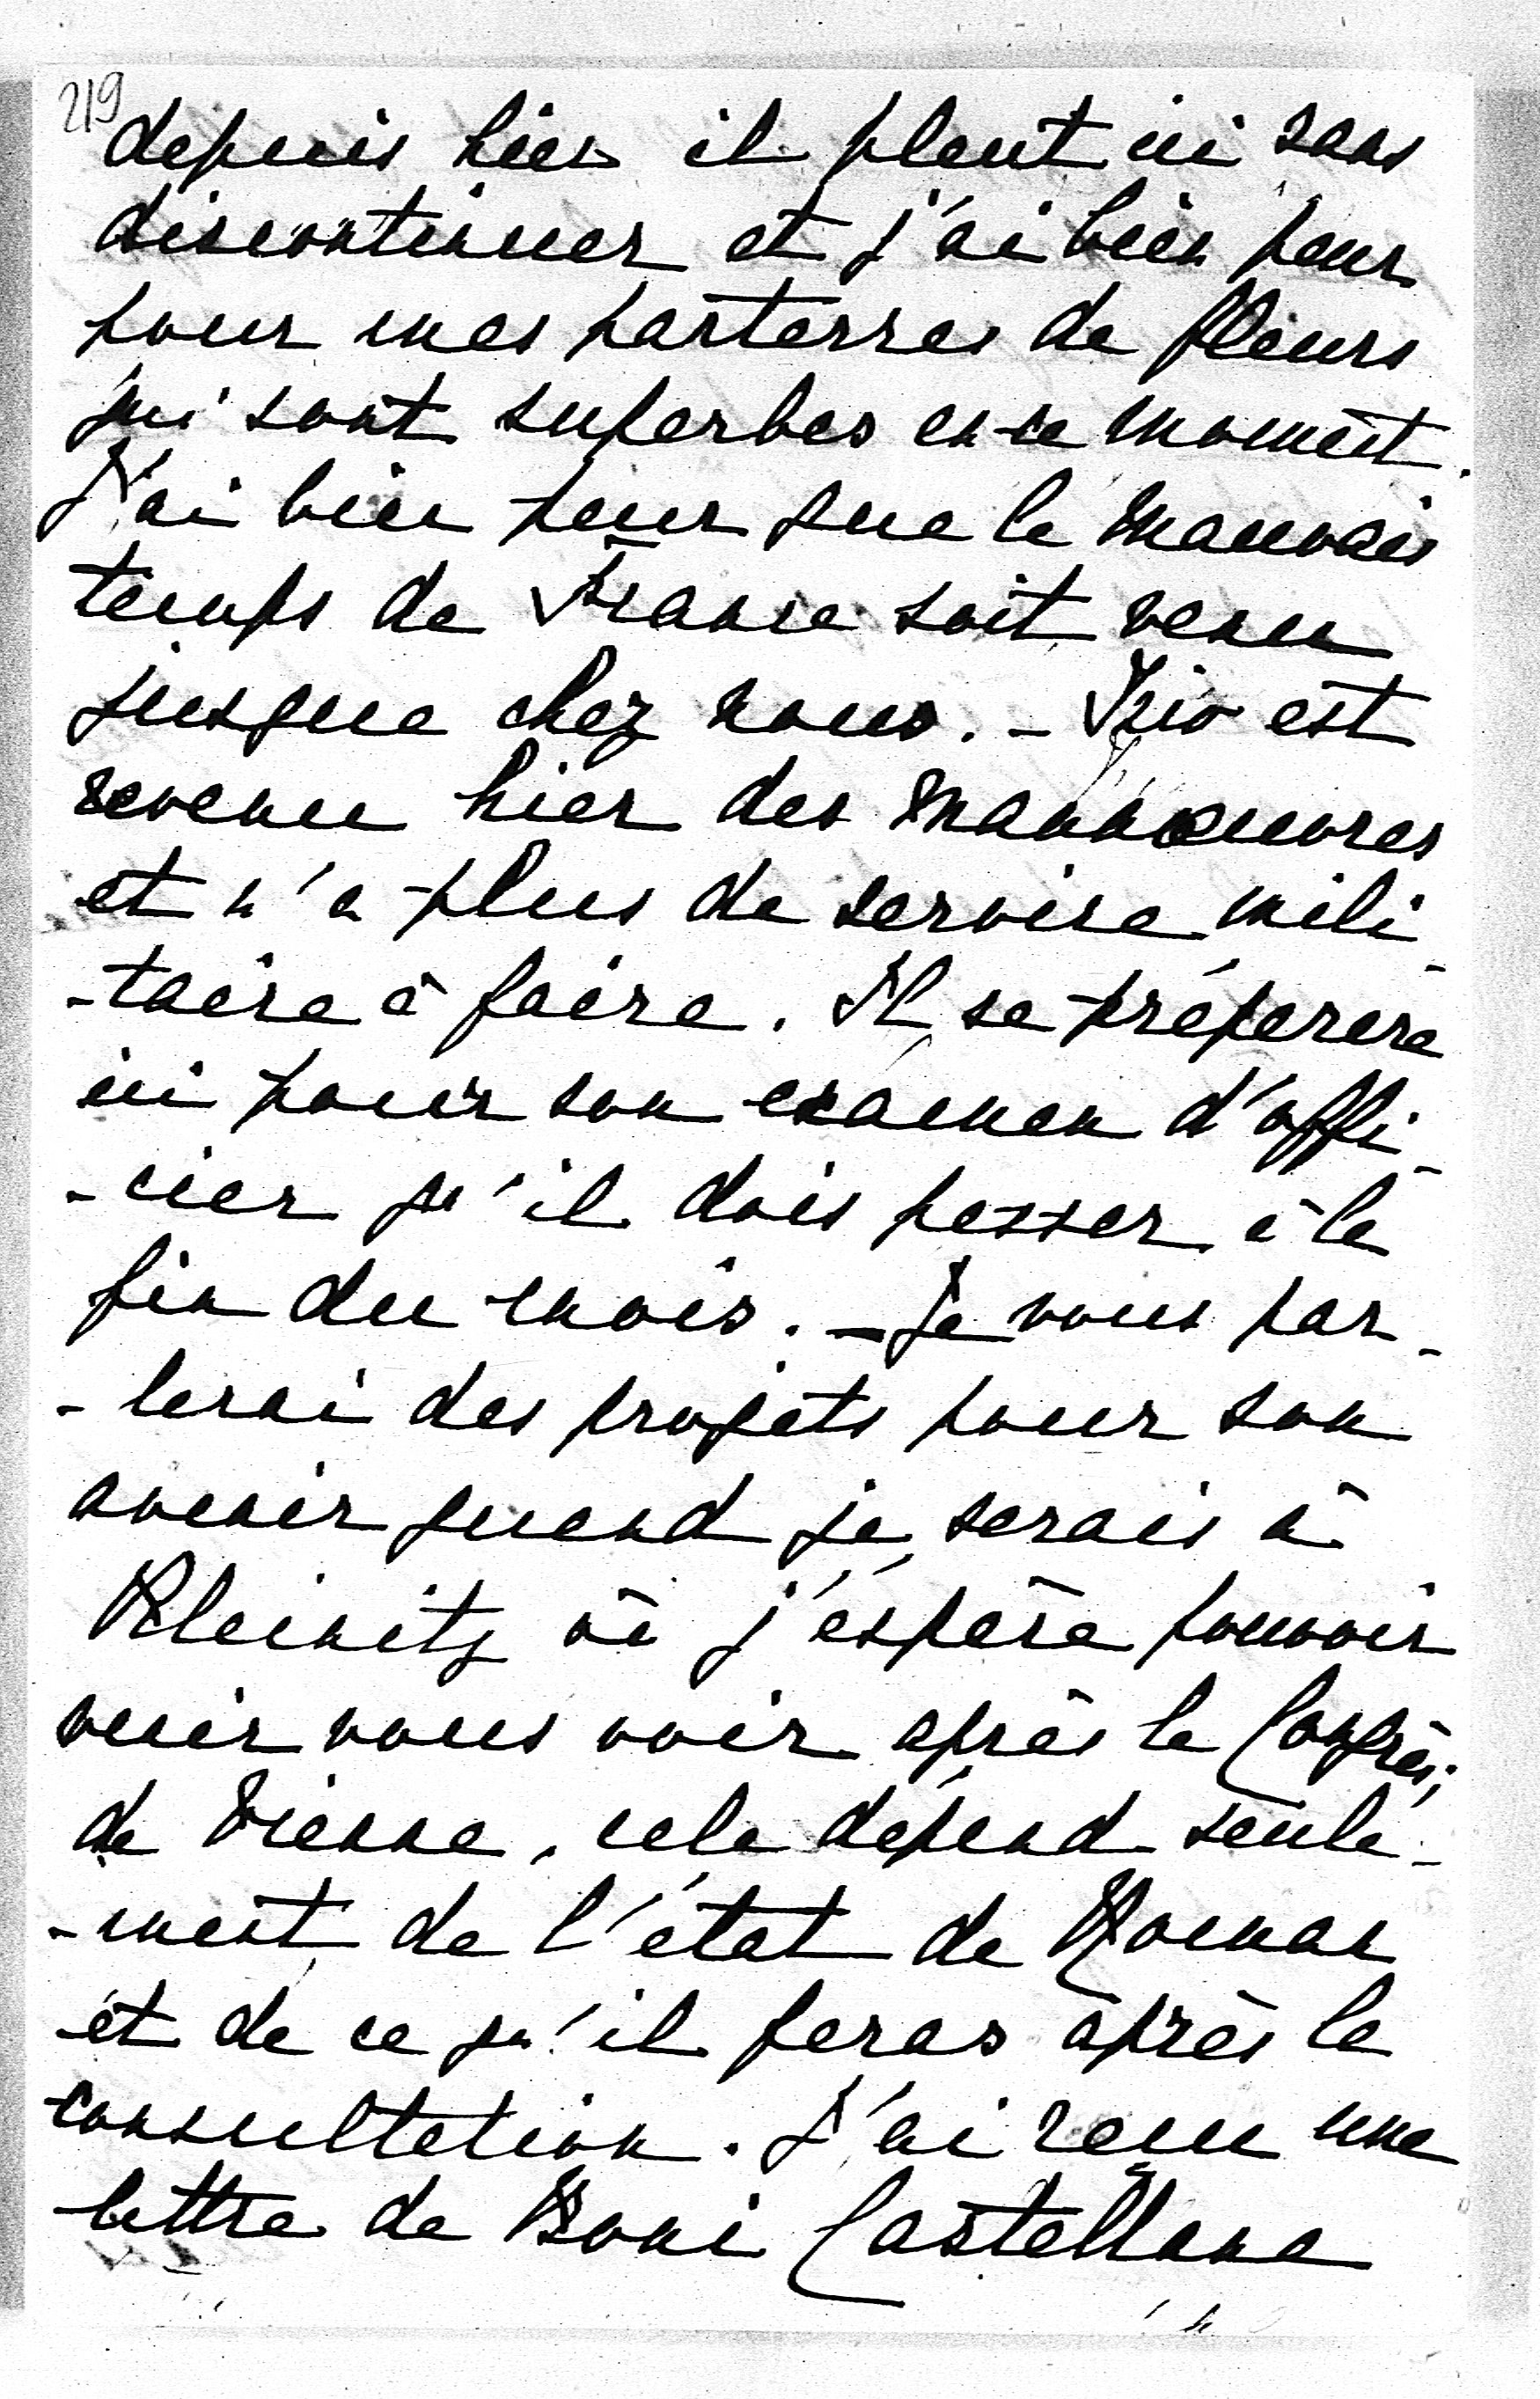 219
depuis hier il pleut ici sans
discontinuer et j'ai bien peur
pour mes parterres de fleurs
qui sont superbes en ce moment.
J'ai bien peur que le mauvais
temps de France soit venu
jusque chez nous. - Trio est
revenu hier des mannœuvres
et n'a plus de service mili-
-taire à faire. Il se préparera
ici pour son examen d'offi-
-cier qu'il dois passer à la
fin du mois. - Je vous par-
-lerai des projets pour son
avenir quand je serais à
Kleinitz où j'espère pouvoir
venir vous voir après le Congrès
de Vienne, cela dépend seule-
-ment de l'état de Roman
et de ce qu'il feras après la
consultation. J'ai reçu une
lettre de Boni Castellane